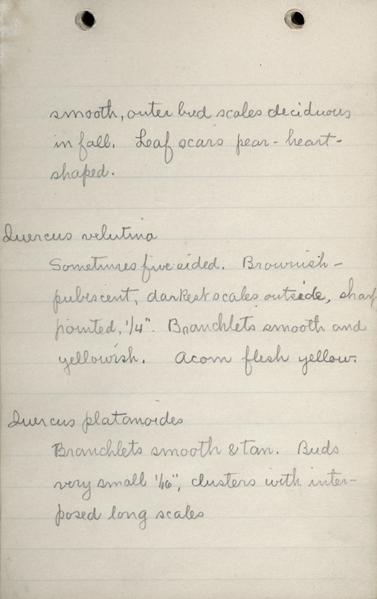 smooth, outer bud scales deciduous
in fall. Leaf scars pear-heart-
shaped.
Quercus velutina
Sometimes five sided. Brownish-
pubescent, darkest scales outside, sharp
pointed, 1/4". Branchlets smooth and
yellowish. Acorn flesh yellow.
Quercus platanoides
Branchlets smooth & tan. Buds
very small 1/16", clusters with inter-
posed long scales